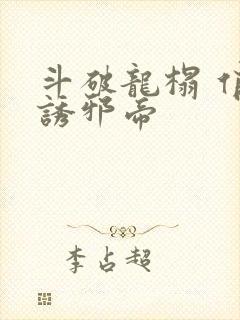 斗破龍榻
誘邪帝
李占超